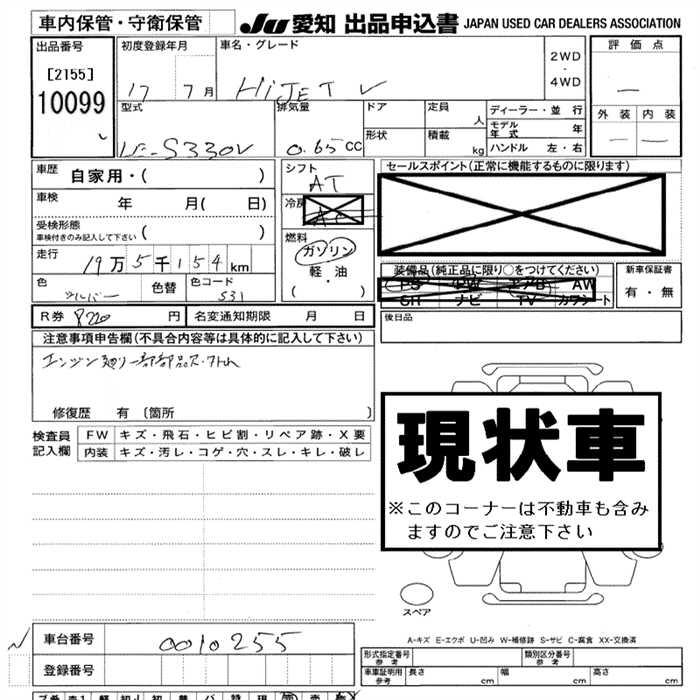 車内保管・守衛保管 JU 愛知 出品申込書 JAPAN USED CAR DEALERS ASSOCIATION
出品番号 初度登録年月 車名・グレード 2WD・4WD 評価点
[2155] 17 7月 HiJET V ー
10099 外装 内装
型式 排気量 ドア 定員 人 ディーラー・並行
モデル年式 年
LE-S330V 0.65CC 形状 積載 kg ハンドル 左・右 ー ー
車歴 自家用・( ) シフト AT セールスポイント(正常に機能するものに限ります)
車検 年 月( 日) 冷房 AC
受検形態
車検付きのみ記入して下さい ( ) 燃料
ガソリン
走行 19万5千154km 軽・油 装備品(純品に限り○をつけてください) 新車保証書
色 シルバー 色替 色コード S31 ( ) PS PW エアB AW 有・無
SR ナビ TV カワシート
R券 8220円 名変通知期限 月 日 後日品
注意事項申告欄(不具合内容等は具体的に記入して下さい)
エンジン廻り一部部品
修復歴 有 〔箇所 〕
現状車
※このコーナーは不動車も含みますのでご注意下さい
検査員 FW キズ・飛石・ヒビ割・リペア跡・X要
記入欄 内装 キズ・汚レ・コゲ・穴・スレ・キレ・破レ
スペア
A-キズ E-エクボ U-凹み W-補修跡 S-サビ C-腐食 XX-交換済
車台番号 0010255 形式指定番号 参考 類別区分番号 参考
登録番号 車庫証明用 参考 長さ cm 幅 cm 高さ cm